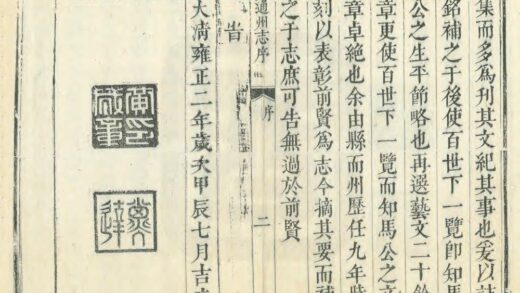 集而多爲刊其文紀其事也爰以誌
銘補之于後使百世下一覽卽知馬
公之生平節略也再選藝文二十餘
章更使百世下一覽而知馬公之文
章卓絶也余由縣而州歷任九年時
刻以表彰前賢爲志今摘其要而補
之于志庶可告無過於前賢
通州志序
序
二
旹
大淸雍正二年歲次甲辰七月吉